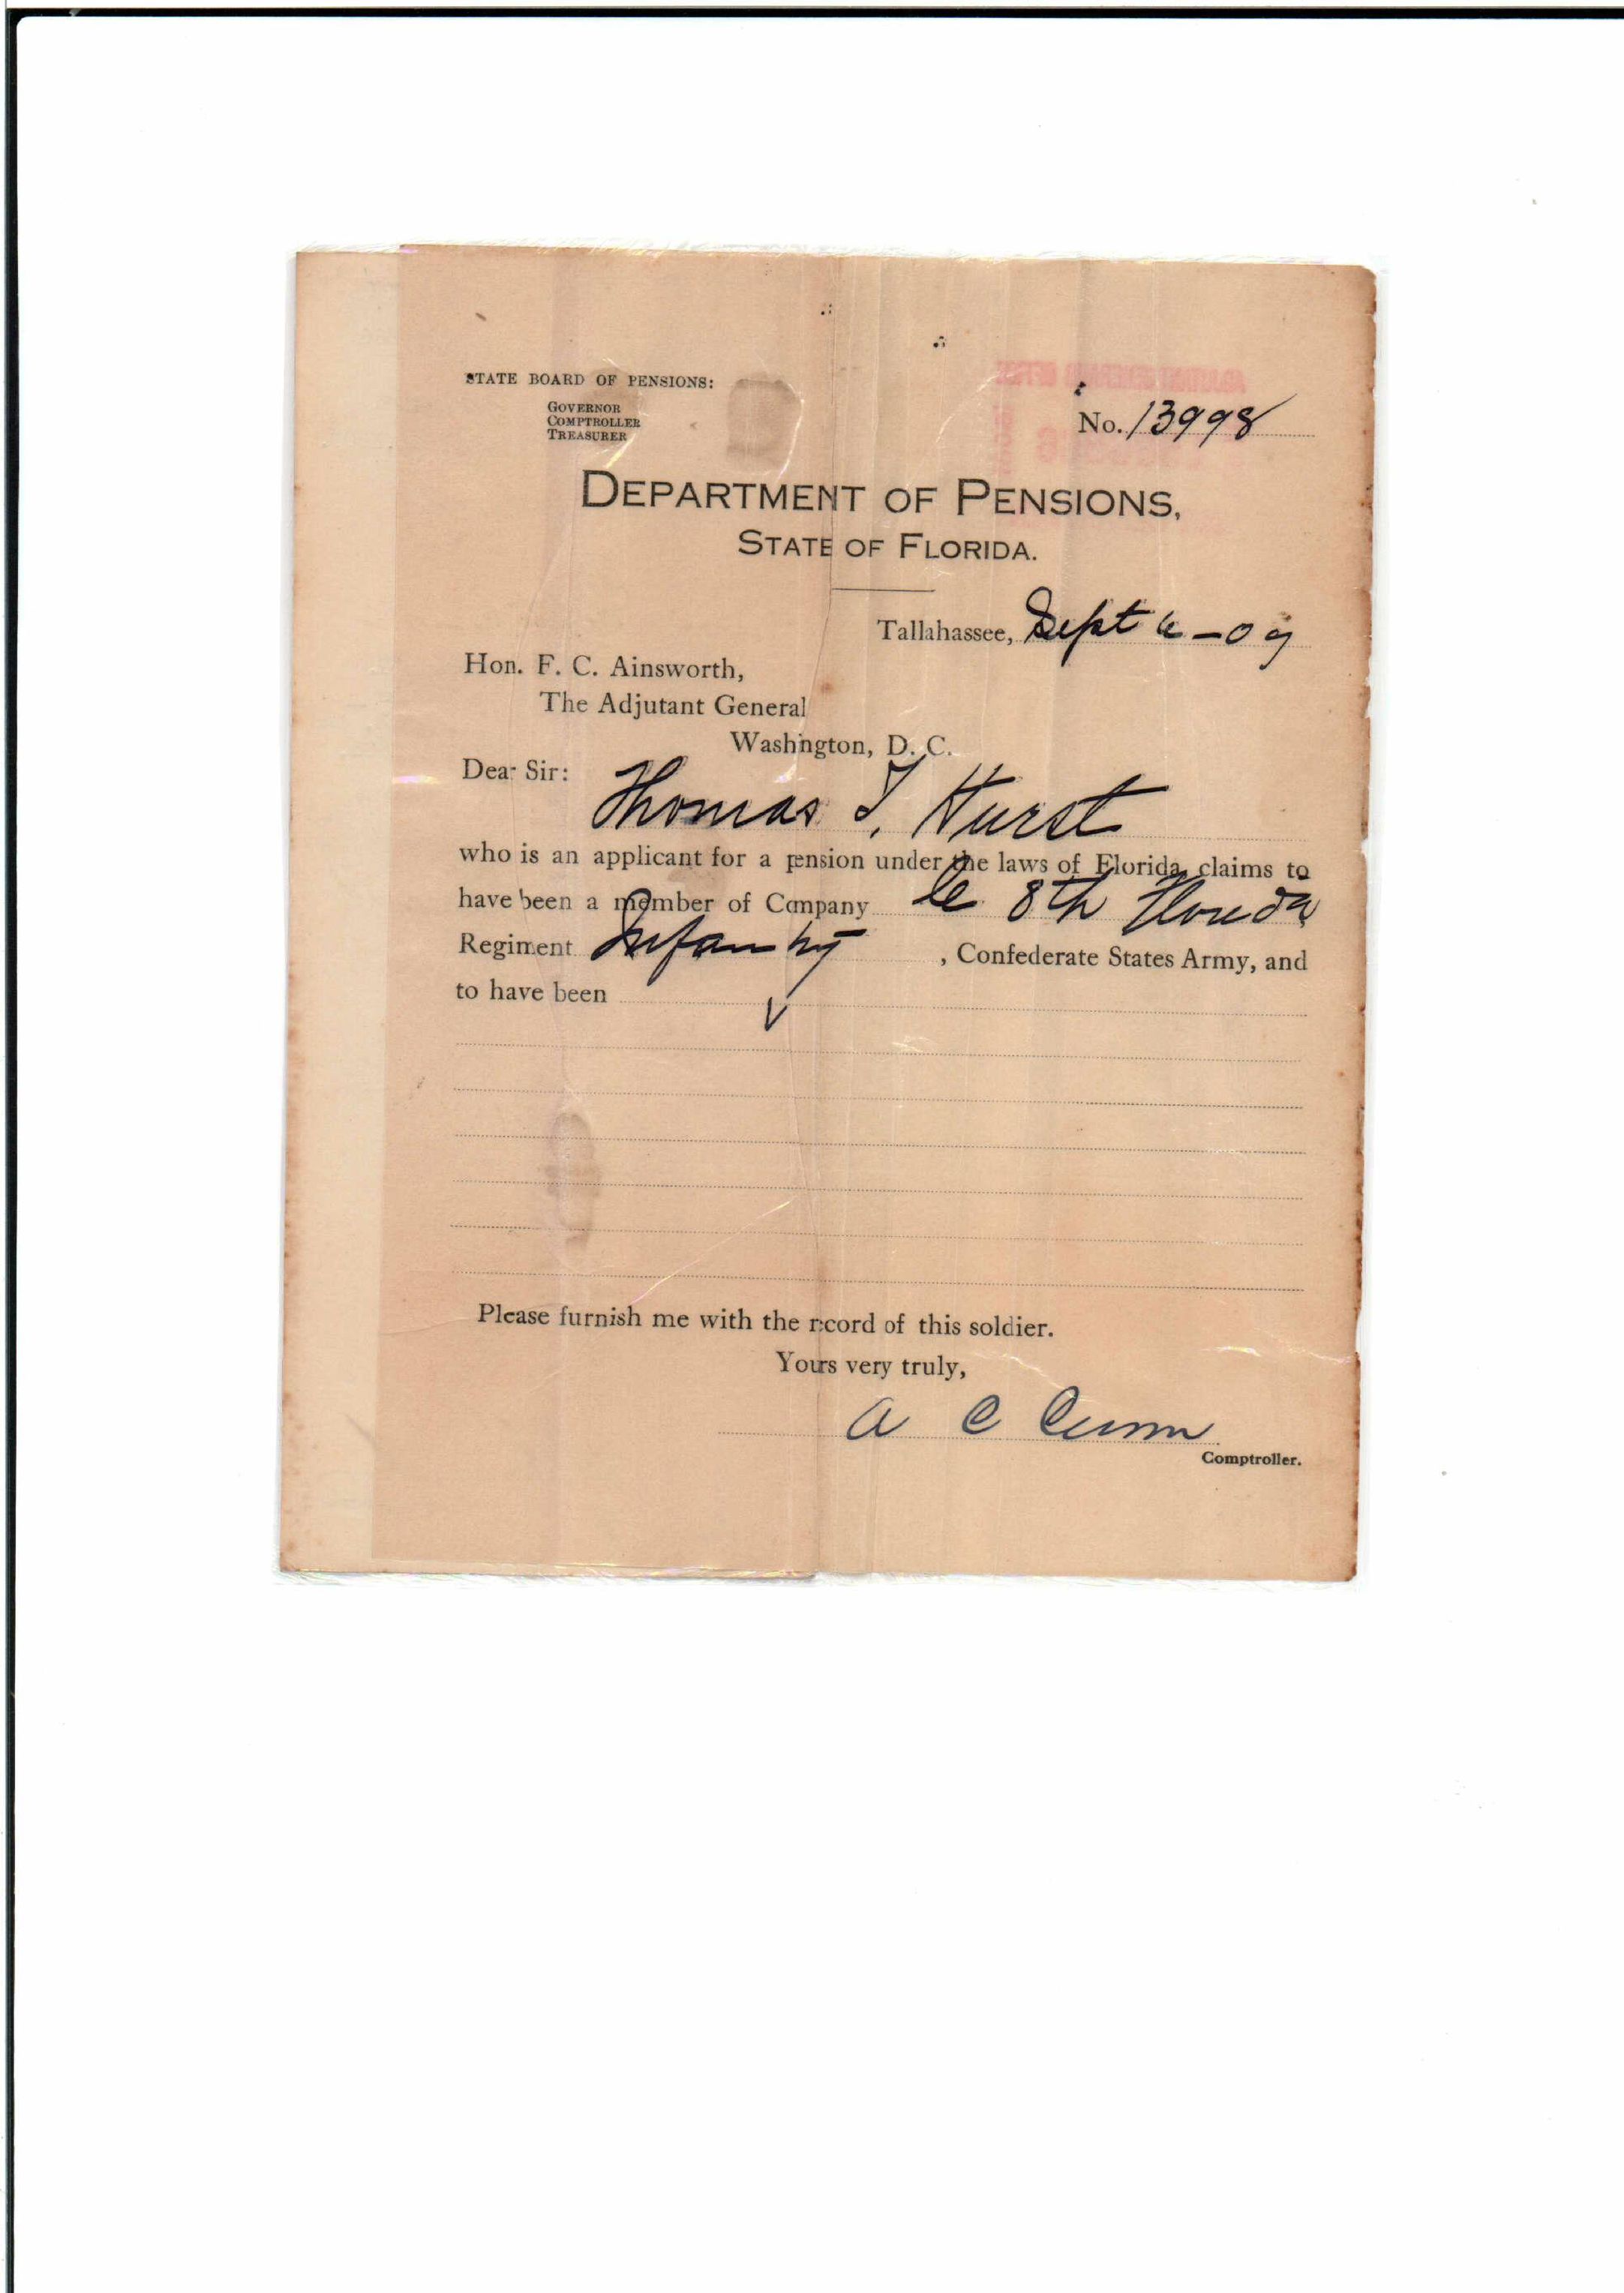 STATE BOARD OF PENSIONS:
GOVERNOR
COMPTROLLER
TREASURER
No. 13998
DEPARTMENT OF PENSIONS,
STATE OF FLORIDA.
Tallahassee, Sept 6-09
Hon. F. C. Ainsworth,
The Adjutant General
Washington, D. C.
Dear Sir:
Thomas T. Hurst
who is an applicant for a pension under the laws of Florida, claims to
have been a member of Company C 8th Florida
Regiment Infantry, Confederate States Army, and
to have been
Please furnish me with the record of this soldier.
Yours very truly,
A C Croom
Comptroller.